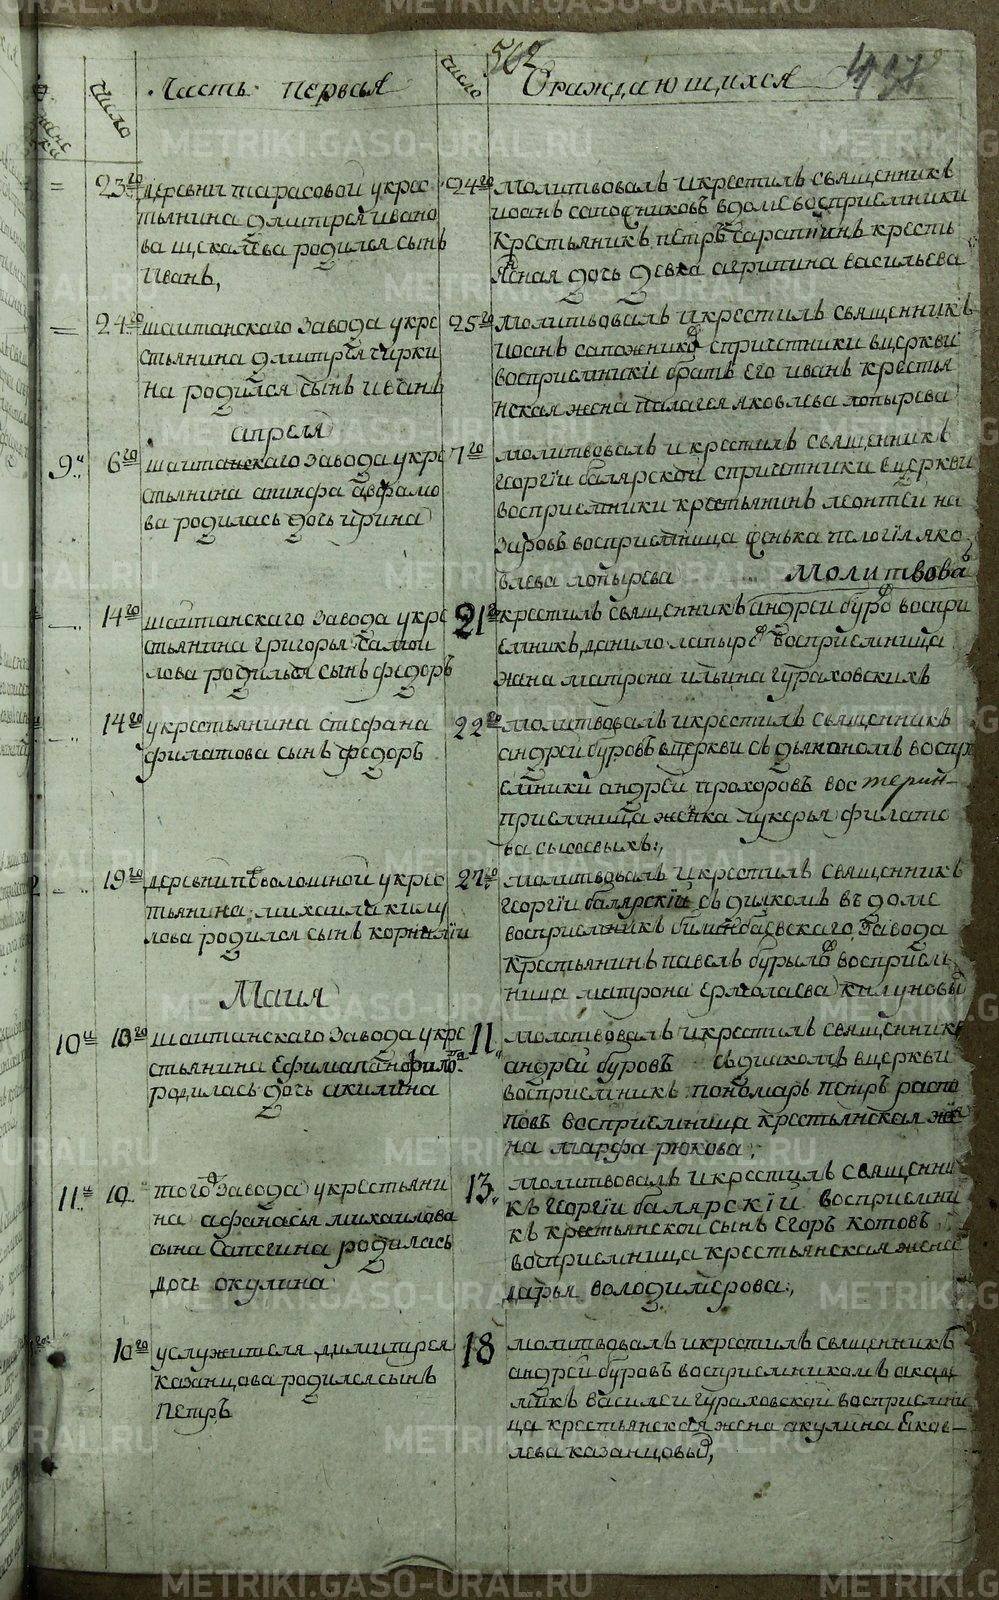 562
498
число Часть первая число О раждающихся
23го деревни тарасовой укрес
тьянина дмитрея ивано
ва щекалева родился сынъ
Иванъ,
24го молитвовалъ икрестилъ священникъ
иоанъ сапожниковъ вдоме восприемники
крестьяникъ петръ
крестьянская дочь девка агрипина васильева
24го шаитанскаго завода укре
стьянина дмитрея чирки
на родился сынъ иванъ
25го молитвовалъ икрестилъ священникъ
иоанъ сапожниковъ спричтники вцеркви
восприемники братъ его иванъ крестья
нская жена палагея яковлева лопырева
апреля
9и 6го шаитанскаго завода укре
стьянина
ва родилась дочь ирина
7го молитвовалъ икрестилъ священникъ
георгіи балярской спричтники вцеркви
восприемники крестьянинъ леонтей на
заровъ восприемница женька пелогія яко
влева лопырева молитвовалъ
14го шаитанскаго завода укре
стьянина григорья самои
лова родилься сынъ федоръ
21го крестилъ священникъ андрей буровъ воспри
емникъ данило лапыревъ восприемница
жана матрона ильина гураховскихъ
14го укрестьянина стефана
филатова сынъ федоръ
22го молитвовалъ икрестилъ священникъ
андрей буровъ вцеркви съ дьякономъ воспр
емники андрей прохоровъ вос
приемница женка лукерья филато
ва сысоевыхъ:,
19го деревни переволошной укрес
тьянина михаила килу
лова родился сынъ корнилїи
27го молитвовалъ икрестилъ священникъ
георгіи балярскїи съ дияком въ доме
восприемникъ билинбаевскаго завода
крестьянинъ павелъ бурылов восприем
ница матрона ермолаева килуновы
Маия
10и 10го шаитанскаго завода укре
стьянина ефима панфилова
родилась дочь акилина
11 молотвовалъ икрестилъ священникъ
андрей буровъ съдиякомъ вцеркви
восприемникъ пономарь петръ распо
повъ восприемница крестьянская же
на марфа рюкова,
11и 10 того завода укрестьяни
на афанасья михаилова
сына сапегина родилась
дочь окулина
13 молитвовалъ икрестилъ священни
къ георгїи балярскїи восприемни
къ крестьянской сынъ егоръ котовъ
восприемница крестьянская жена
дарья володимерова:,
10го услужителя димитрея
казанцова родился сынъ
Петръ
18 молитвовалъ икрестилъ священникъ
андрей буровъ восприемникомъ
василеи гураховской восприемни
ца крестьянская жена акулина яков-
лева казанцовы,
METRIKI.GASO-URAL.RU